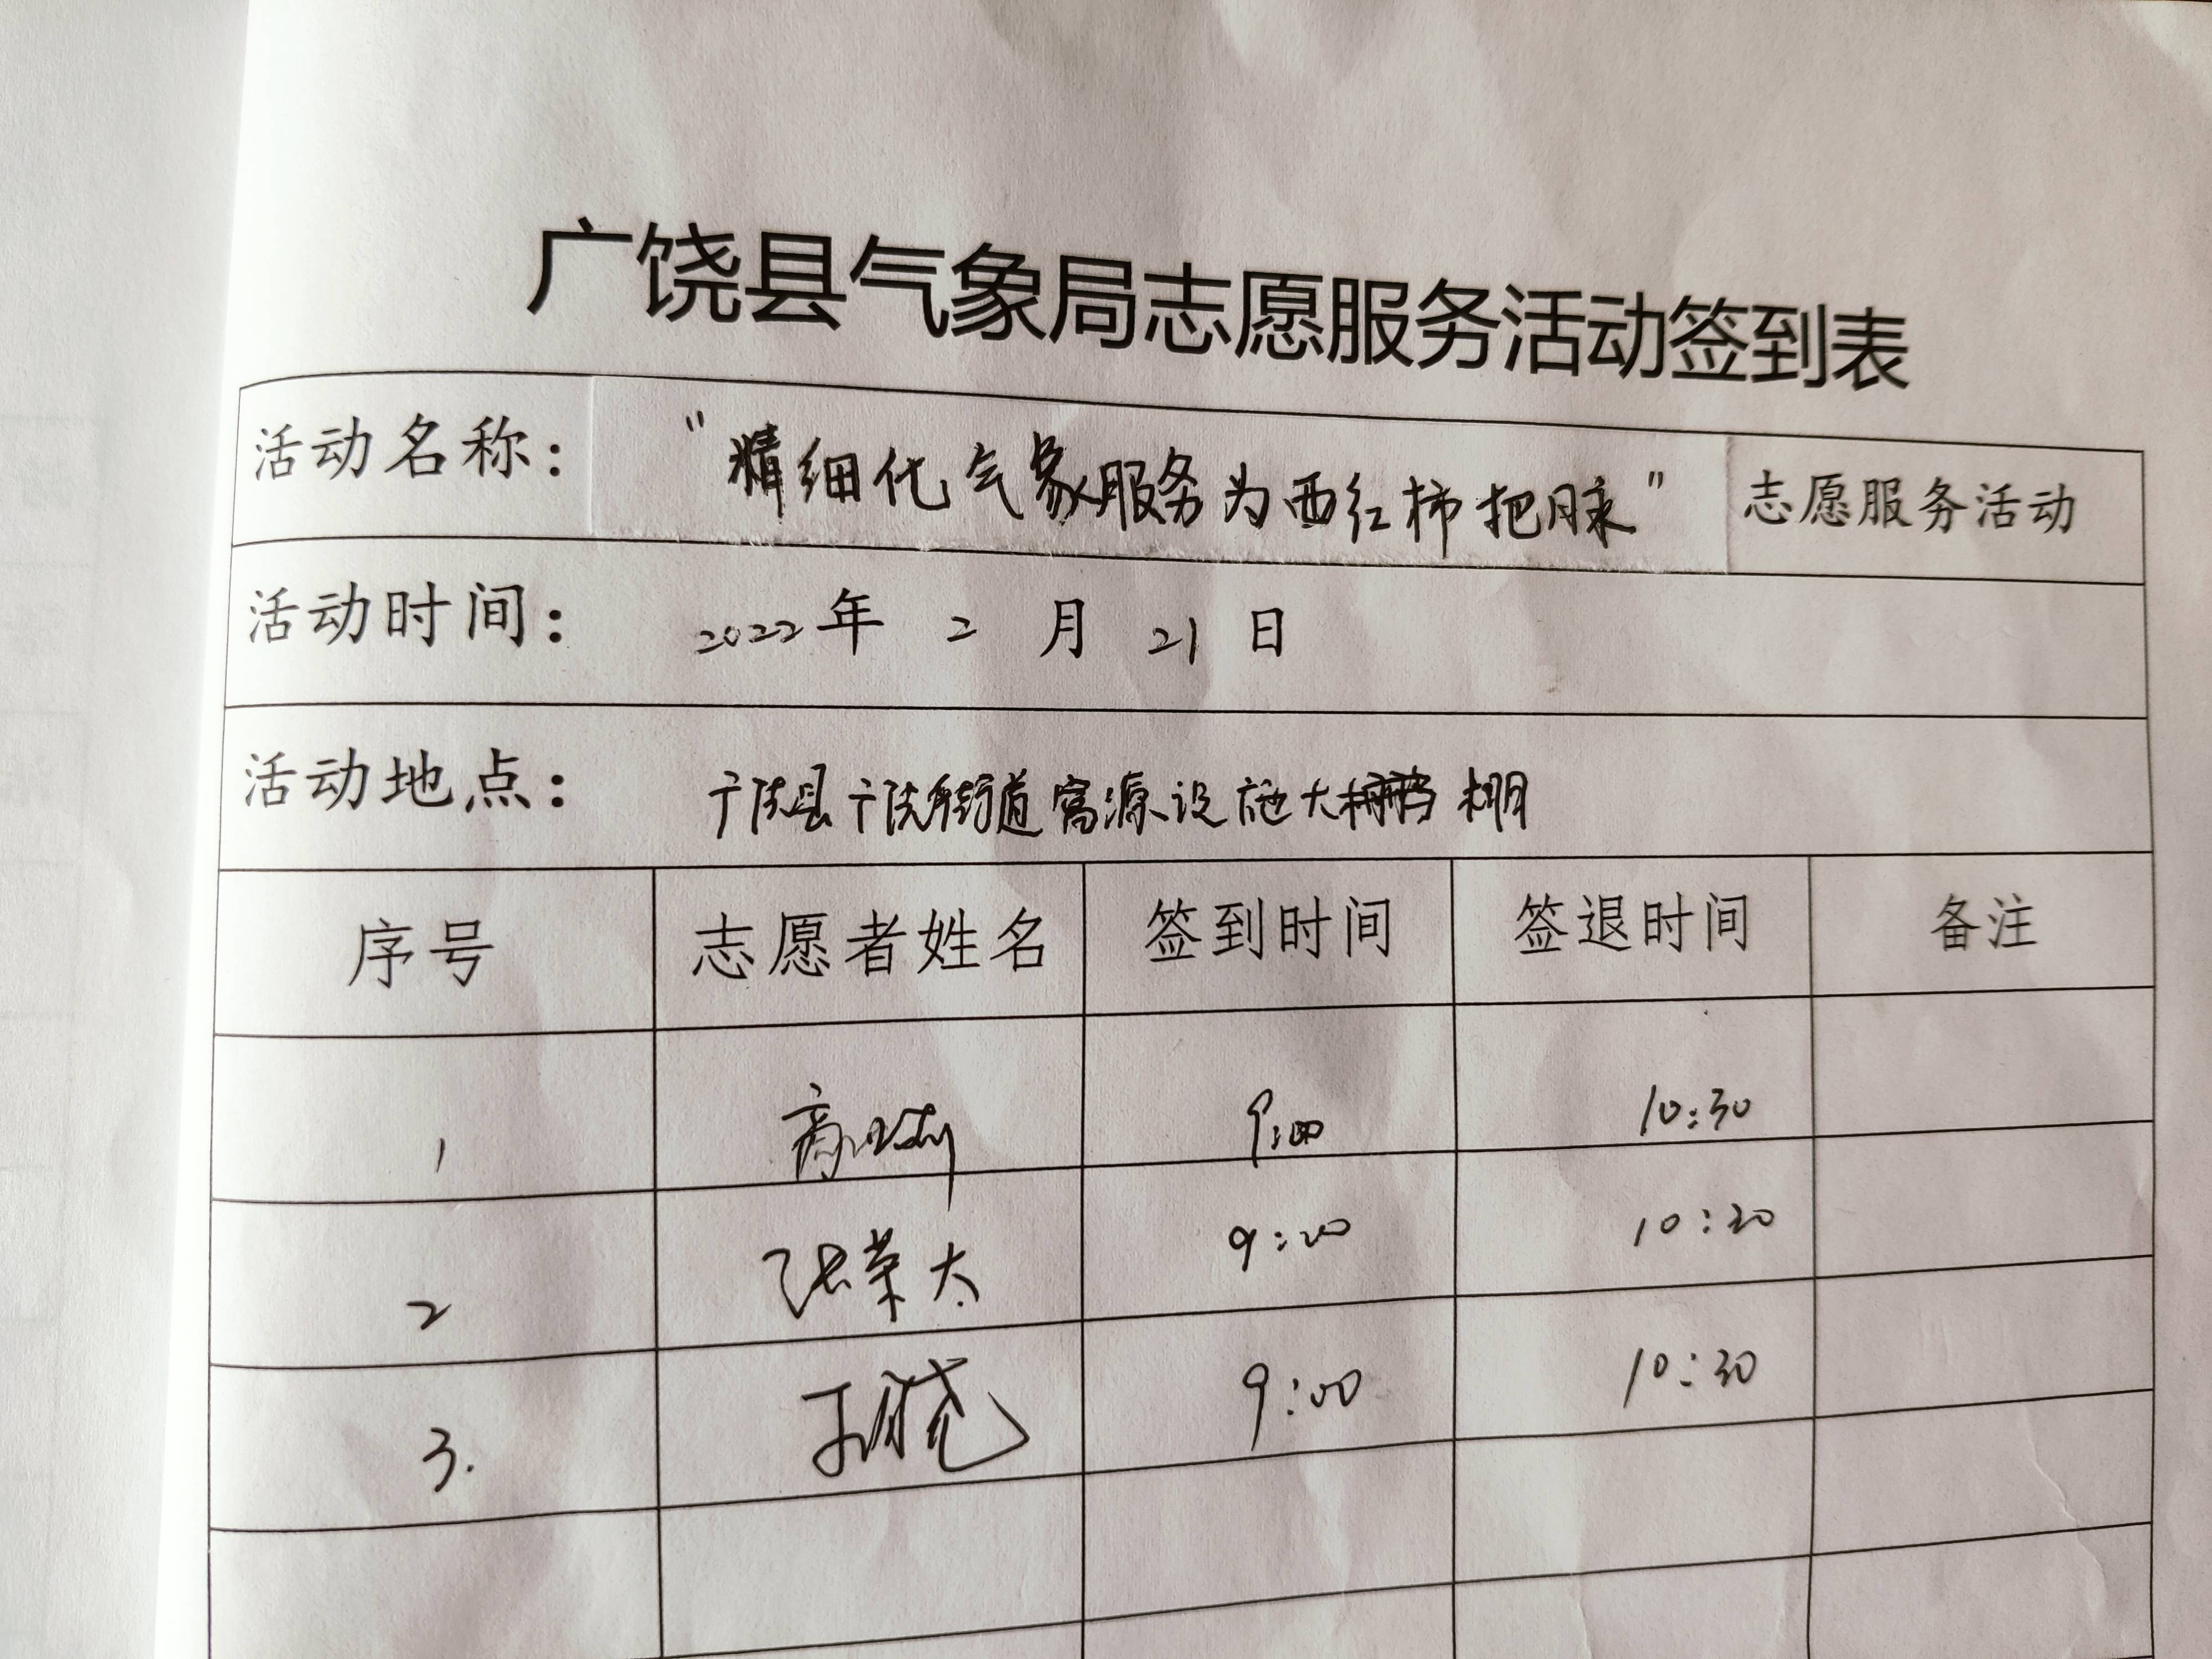 广饶县气象局志愿服务活动签到表
活动名称： "精细化气象服务为西红柿把脉" 志愿服务活动
活动时间： 2022年 2 月 21 日
活动地点： 广饶县广饶街道富源设施大棚
序号 志愿者姓名 签到时间 签退时间 备注
1 9:00 10:30
2 张荣太 9:20 10:20
3. 9:00 10:30